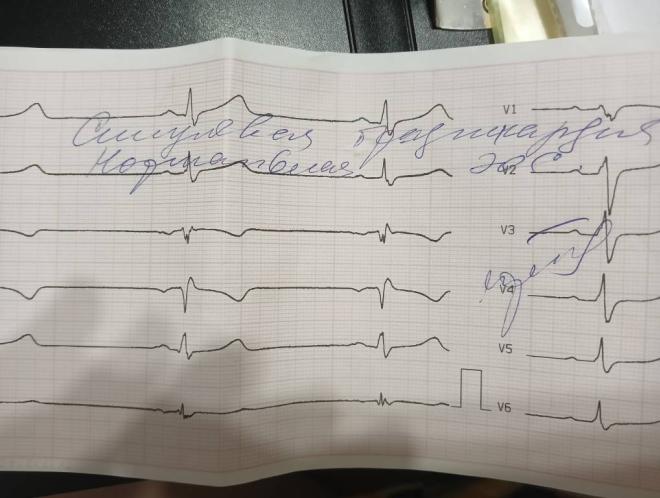 V1
Синусовая брадикардия
Нормальная ЭОС.
V2
V3
V4
V5
V6